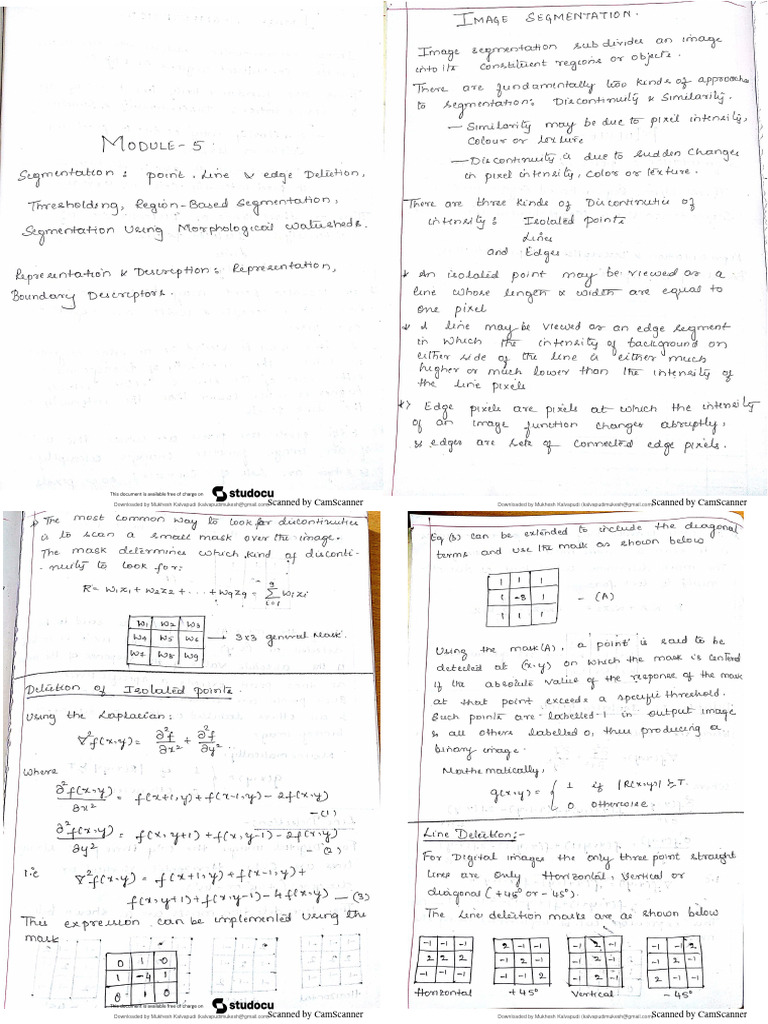 MODULE-5
Segmentation: point, Line & edge Detection,
Thresholding, Region-Based Segmentation,
Segmentation Using Morphological Watersheds.
Representation & Description: Representation,
Boundary Descriptors.
This document is available free of charge on
studocu
Scanned by CamScanner
Downloaded by Mukhesh Kalvapudi (kalvapudimukesh@gmail.com)
IMAGE SEGMENTATION.
Image segmentation sub divides an image
into its constituent regions or objects.
There are fundamentally two kinds of approaches
to segmentation: Discontinuity & Similarity.
— Similarity may be due to pixel intensity,
Colour or texture
— Discontinuity is due to sudden changes
in pixel intensity, Color or texture.
There are three kinds of Discontinuities of
intensity: Isolated points
Lines
and Edges
* An isolated point may be viewed as a
line whose length & width are equal to
one pixel
* A line may be viewed as an edge segment
in which the intensity of background on
either side of the line is either much
higher or much lower than the intensity of
the line pixels
* Edge pixels are pixels at which the intensity
of an image function changes abruptly,
& edges are sets of connected edge pixels.
Scanned by CamScanner
Downloaded by Mukhesh Kalvapudi (kalvapudimukesh@gmail.com)
* The most common way to look for discontinuities
is to scan a small mask over the image.
The mask determines which kind of disconti-
-nuity to look for:
R = w1x1 + w2z2 + ... + w9z9 = Σ i=1 9 wizi
w1 w2 w3
w4 w5 w6
w7 w8 w9
→ 3x3 general Mask.
Detection of Isolated points.
Using the Laplacian:
∇²f(x,y) = ∂²f/∂x² + ∂²f/∂y².
where
∂²f(x,y)/∂x² = f(x+1,y) + f(x-1,y) - 2f(x,y) —(1)
∂²f(x,y)/∂y² = f(x,y+1) + f(x,y-1) - 2f(x,y) —(2)
i.e ∇²f(x,y) = f(x+1,y) + f(x-1,y) +
f(x,y+1) + f(x,y-1) - 4f(x,y) —(3)
This expression can be implemented using the
mask
0 1 0
1 -4 1
0 1 0
This document is available free of charge on
studocu
Scanned by CamScanner
Downloaded by Mukhesh Kalvapudi (kalvapudimukesh@gmail.com)
Eq (3) can be extended to include the diagonal
terms and use the mask as shown below
1 1 1
1 -8 1
1 1 1
— (A)
Using the mask (A), a 'point' is said to be
detected at (x,y) on which the mask is centred
if the absolute value of the response of the mask
at that point exceeds a specific threshold.
Such points are labelled 1 in output image
& all others labelled 0, thus producing a
binary image.
Mathematically,
g(x,y) = { 1 if |R(x,y)| ≥ T.
0 otherwise.
Line Detection:-
For Digital images the only three point straight
lines are only Horizontal, Vertical or
diagonal (+45° or -45°).
The Line detection masks are as shown below
-1 -1 -1
2 2 2
-1 -1 -1
Horizontal
2 -1 -1
-1 2 -1
-1 -1 2
+45°
-1 2 -1
-1 2 -1
-1 2 -1
Vertical
-1 -1 2
-1 2 -1
2 -1 -1
-45°
Scanned by CamScanner
Downloaded by Mukhesh Kalvapudi (kalvapudimukesh@gmail.com)